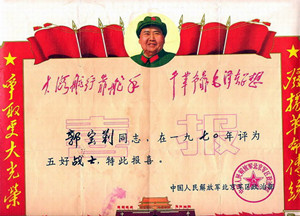 发扬革命传统
争取更大光荣
大海航行靠舵手 干革命靠毛泽东思想
喜报
郭 同志,在一九七0年评为
五好战士,特此报喜。
中国人民解放军北京军区政治部